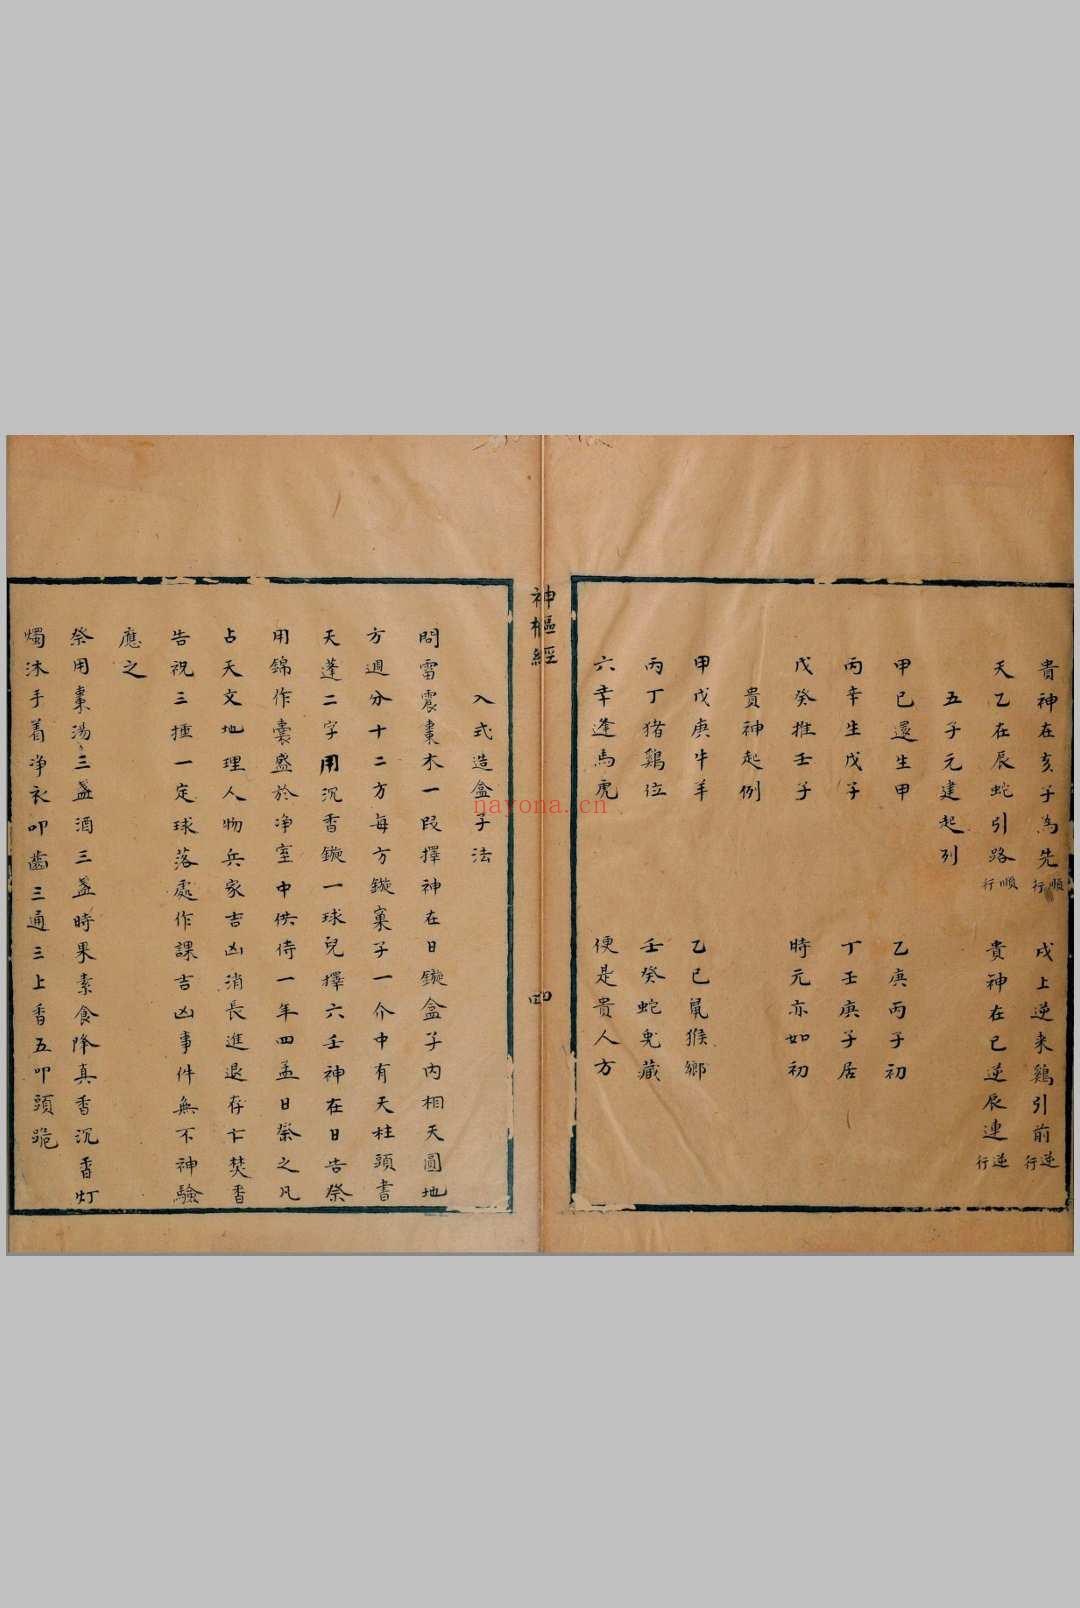 貴神在亥子為先順行　戌上逆来鷄引前逆行
天乙在辰蛇引路順行　貴神在巳逆辰連逆行
五子元建起列
甲己還生甲　乙庚丙子初
丙辛生戊子　丁壬庚子居
戊癸推壬子　時元亦如初
貴神起例
甲戊庚牛羊　乙己鼠猴鄉
丙丁猪鷄位　壬癸蛇兎藏
六辛逢馬虎　便是貴人方
神樞經　四
入式造盒子法
問雷震棗木一段擇神在日鏇盒子内相天圓地
方週分十二方每方鏇窠子一介中有天柱頭書
天蓬二字用沉香鏇一球兒擇六壬神在日告祭
用錦作囊盛於净室中供侍一年四孟日祭之凡
占天文地理人物兵家吉凶消長進退存亡焚香
告祝三揰一定球落處作課吉凶事件無不神驗
應之
祭用棗湯三盞酒三盞時果素食降真香沉香灯
燭沐手着净衣叩齒三通三上香五叩頭跪
nayona.cn